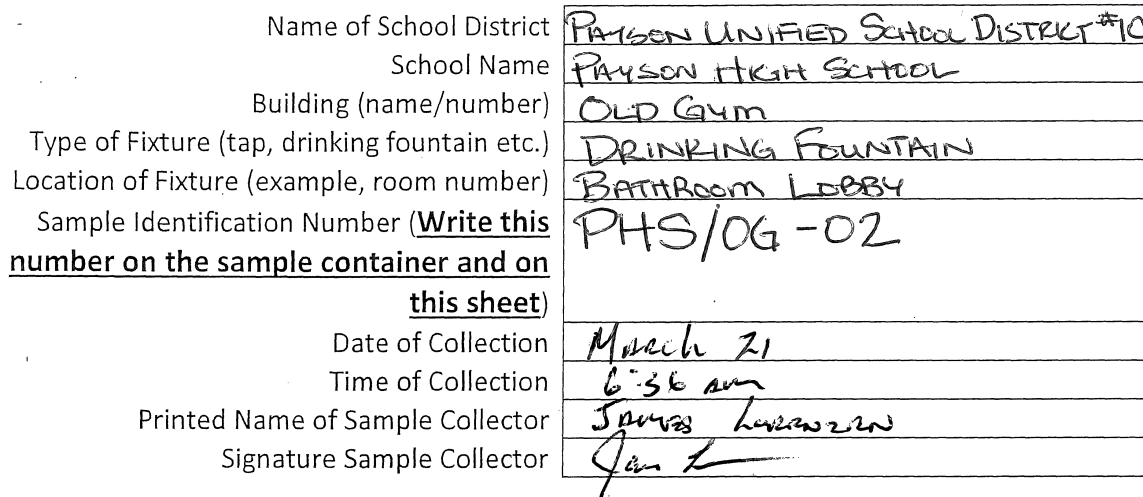 Name of School District PAYSON UNIFIED SCHOOL DISTRICT #10
School Name PAYSON HIGH SCHOOL
Building (name/number) OLD GYM
Type of Fixture (tap, drinking fountain etc.) DRINKING FOUNTAIN
Location of Fixture (example, room number) BATHROOM LOBBY
Sample Identification Number (Write this PHS/OG-02
number on the sample container and on
this sheet)
Date of Collection March 21
Time of Collection 6:36 am
Printed Name of Sample Collector JAMES
Signature Sample Collector